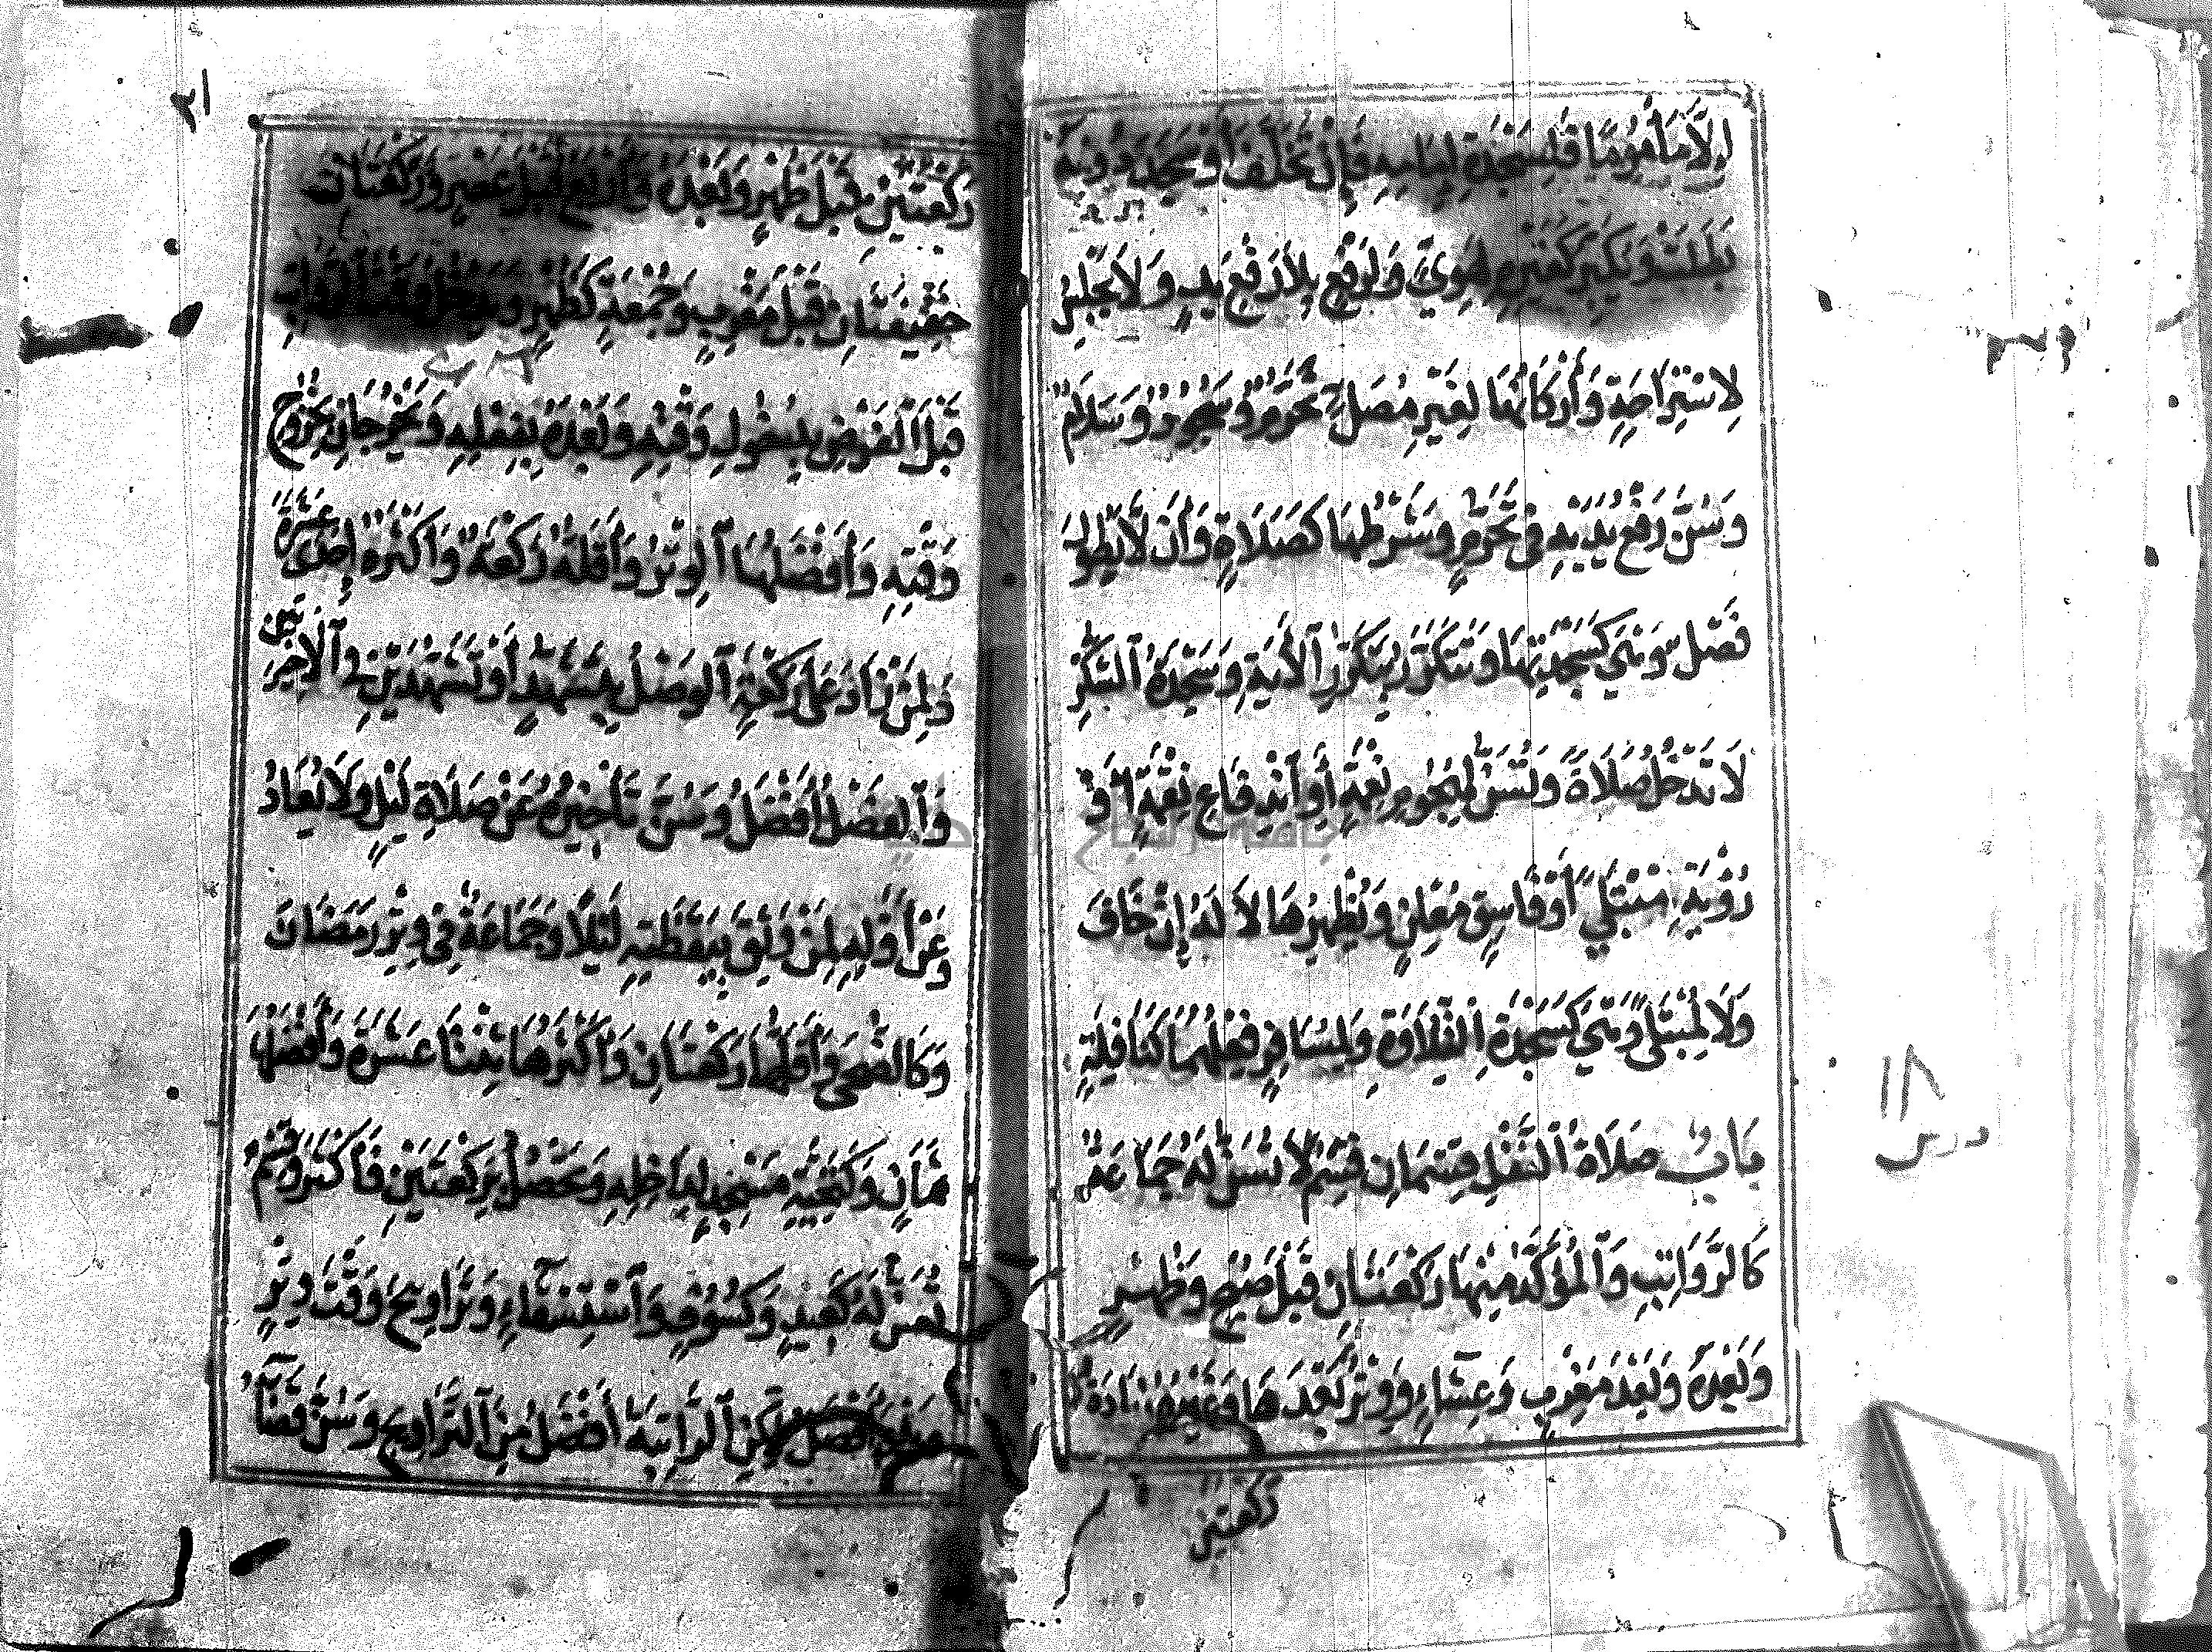 اِلَّا مَأْمُومًا فَلِسَجْدَةِ اِمَامِهِ فَإِنْ تَخَلَّفَ أَوْ سَجَدَ دُونَهُ
بَطَلَتْ وَيُكَبِّرُ كَغَيْرِهِ لِهَوِيٍّ وَلِرَفْعٍ بِلَا رَفْعِ يَدٍ وَلَا يَجْلِسُ
لِاسْتِرَاحَةٍ وَأَرْكَانُهَا لِغَيْرِ مُصَلٍّ تَحَرُّمٌ وَسُجُودٌ وَسَلَامٌ
وَسُنَّ رَفْعُ يَدَيْهِ فِى تَحَرُّمٍ وَشَرْطُهَا كَصَلَاةٍ وَأَنْ لَا يَطُولَ
فَصْلٌ وَهِيَ كَسَجْدَتِهَا وَتَتَكَرَّرُ بِتَكَرُّرِ الْأَيَةِ وَسَجْدَةُ الشُّكْرِ
لَا تَدْخُلُ صَلَاةً وَتُسَنُّ لِهُجُومِ نِعْمَةٍ أَوِ انْدِفَاعِ نِقْمَةٍ أَوْ
رُؤْيَةِ مُبْتَلًي أَوْ فَاسِقٍ مُعْلِنٍ وَيُظْهِرُهَا لَا لَهُ إِنْ خَافَ
وَلَا لِمُبْتَلًى وَهِيَ كَسَجْدَةِ التِّلَاوَةِ وَلِمُسَافِرٍ فِعْلُهُمَا كَنَافِلَةٍ
بَابُ صَلَاةُ النَّفْلِ قِسْمَانِ قِسْمٌ لَا تُسَنُّ لَهُ جَمَاعَةٌ
كَالرَّوَاتِبِ وَالْمُؤَكَّدُ مِنْهَا رَكْعَتَانِ قَبْلَ صُبْحٍ وَظُهْرٍ
وَبَعْدَهُ وَبَعْدَ مَغْرِبٍ وَعِشَاءٍ وَوِتْرٌ بَعْدَهَا وَغَيْرُهُ زِيَادَةُ
رَكْعَتَيْنِ
درس
١٨
٢١
رَكْعَتَيْنِ قَبْلَ ظُهْرٍ وَبَعْدَهُ وَأَرْبَعٌ قَبْلَ عَصْرٍ وَرَكْعَتَانِ
خَفِيفَتَانِ قَبْلَ مَغْرِبٍ وَجُمُعَةٌ كَظُهْرٍ وَيَدْخُلُ وَقْتُ الرَّوَاتِبِ
قَبْلَ الْفَرْضِ بِدُخُولِ وَقْتِهِ وَبَعْدَهُ بِفِعْلِهِ وَيَخْرُجَانِ بِخُرُوجِ
وَقْتِهِ وَأَفْضَلُهَا الْوِتْرُ وَأَقَلُّهُ رَكْعَةٌ وَأَكْثَرُهُ إِحْدَى عَشْرَةَ
وَلِمَنْ زَادَ عَلَى رَكْعَةٍ الْوَصْلُ بِتَشَهُّدٍ أَوْ تَشَهُّدَيْنِ فِي الْأَخِيرَتَيْنِ
وَالْفَصْلُ أَفْضَلُ وَسُنَّ تَأْخِيرُهُ عَنْ صَلَاةِ لَيْلٍ وَلَا يُعَادُ
وَعَنْ أَوَّلِهِ لِمَنْ وَثِقَ بِيَقَظَتِهِ لَيْلًا وَجَمَاعَةٌ فِى وِتْرِ رَمَضَانَ
وَكَالضُّحَى وَأَقَلُّهَا رَكْعَتَانِ وَأَكْثَرُهَا ثِنْتَا عَشْرَةَ وَأَفْضَلُهَا
ثَمَانٍ وَكَتَحِيَّةِ مَسْجِدٍ لِدَاخِلِهِ وَتَحْصُلُ بِرَكْعَتَيْنِ فَأَكْثَرَ وَقِسْمٌ
تُسَنُّ لَهُ كَعِيدٍ وَكُسُوفٍ وَاسْتِسْقَاءٍ وَتَرَاوِيحَ وَقْتَ وِتْرٍ
وَهُوَ أَفْضَلُ لَكِنِ الرَّاتِبَةُ أَفْضَلُ مِنَ التَّرَاوِيحِ وَسُنَّ قَضَآءُ